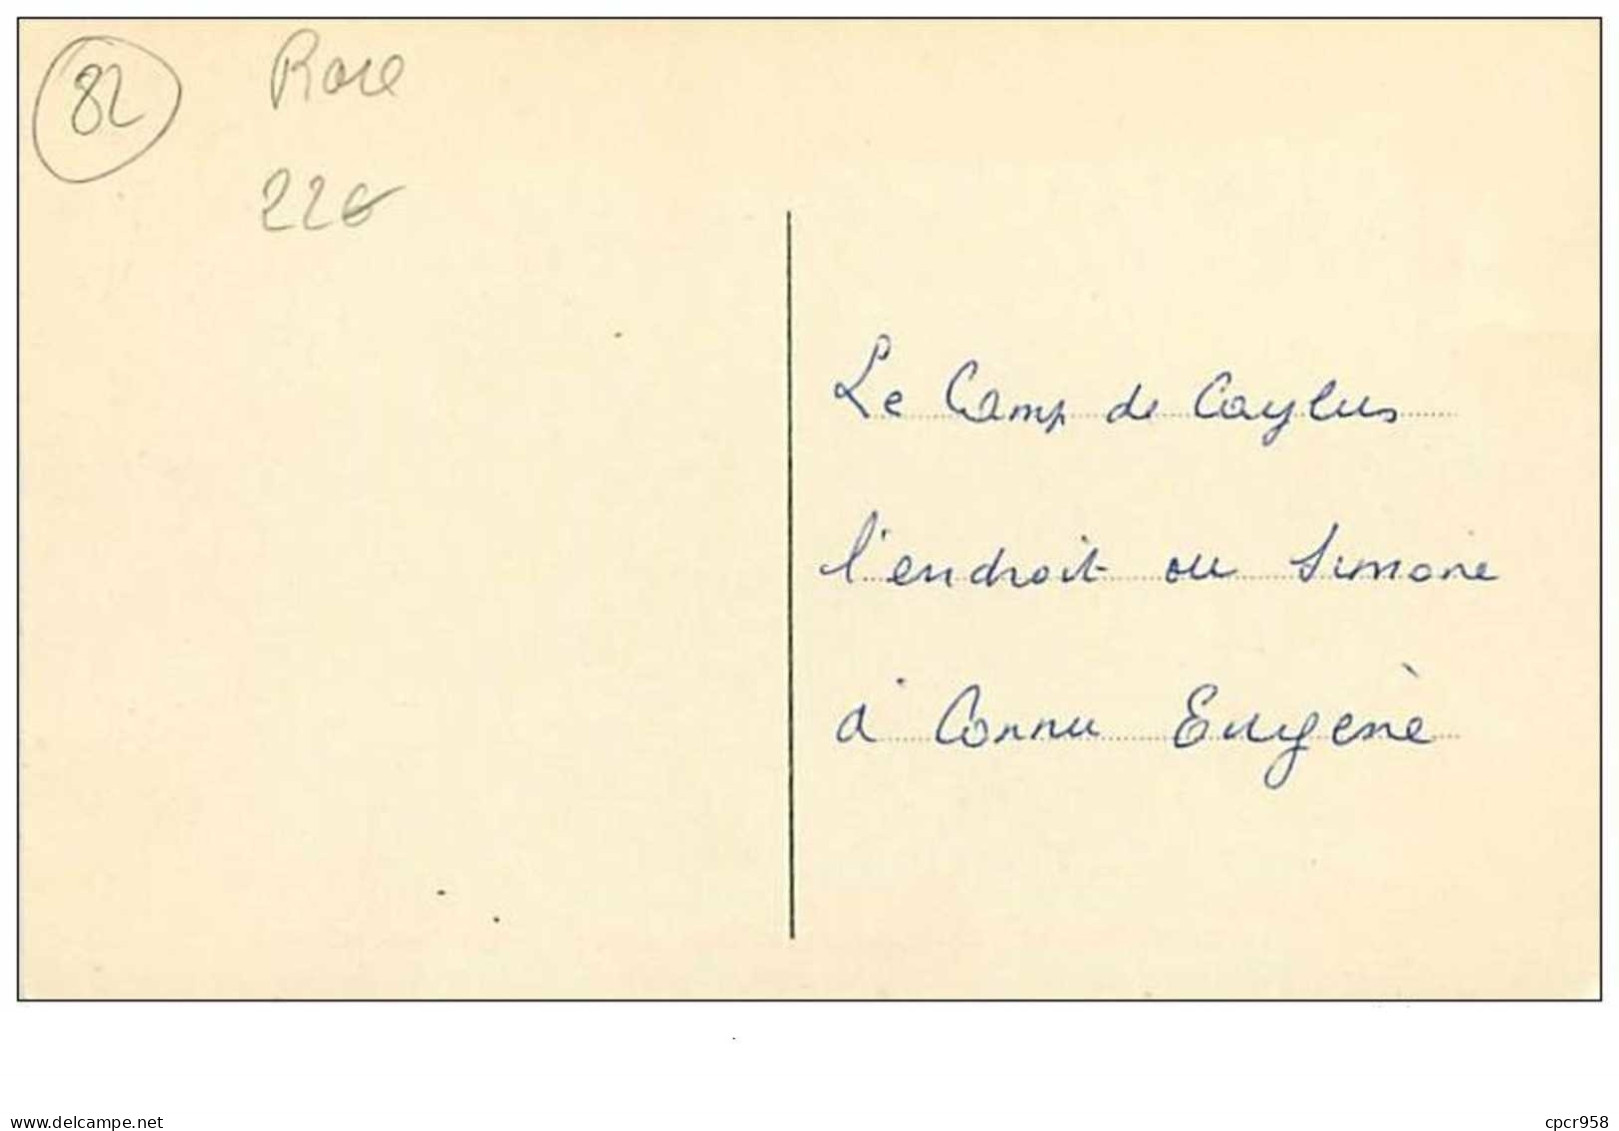 82
Rare
22€
Le Camp de Caylus
l'endroit ou Simone
à Connu Eugène
delcampe.net
cpcr958